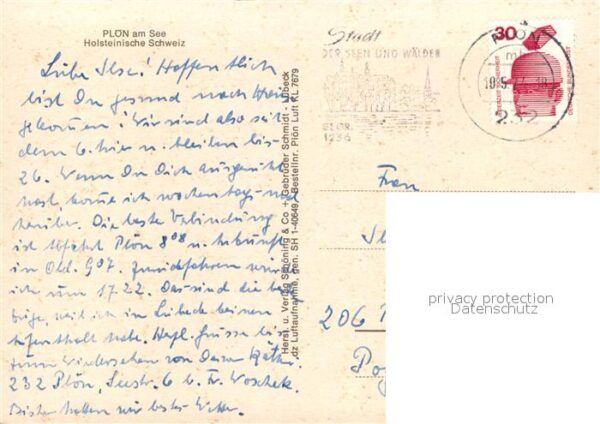 PLÖN am See
Holsteinische Schweiz
Liebe Ilse! Hoffentlich
bist Du gesund nach Hause
gekommen! Wir sind also seit
dem 6. hier u. bleiben bis
26. Wenn Du Dich ausgeruht
hast, komme ich wochentags mal
herüber. Die beste Verbindung
ist Abfahrt Plön 8⁰⁸ u. Ankunft
in Old. 9⁰⁷. Zurückfahren würde
ich um 17.22. Das sind die
weil ich in Lübeck keinen
Aufenthalt habe. Herzl. Grüsse bis
zum Wiedersehen von Deiner Käthe.
232 Plön, Seestr. 6 b. Fr. Woschek.
Bisher hatten wir bestes Wetter.
Herst. u. Verlag Schöning & Co + Gebrüder Schmidt - Lübeck
dz Luftaufnahme, gen. SH 1-40649 - Bestellnr. Plön Luft KL 7679
Stadt
DER SEEN UND WÄLDER
GEGR.
1236
PLÖN
232
30
DEUTSCHE BUNDESPOST
Frau
206
privacy protection
Datenschutz